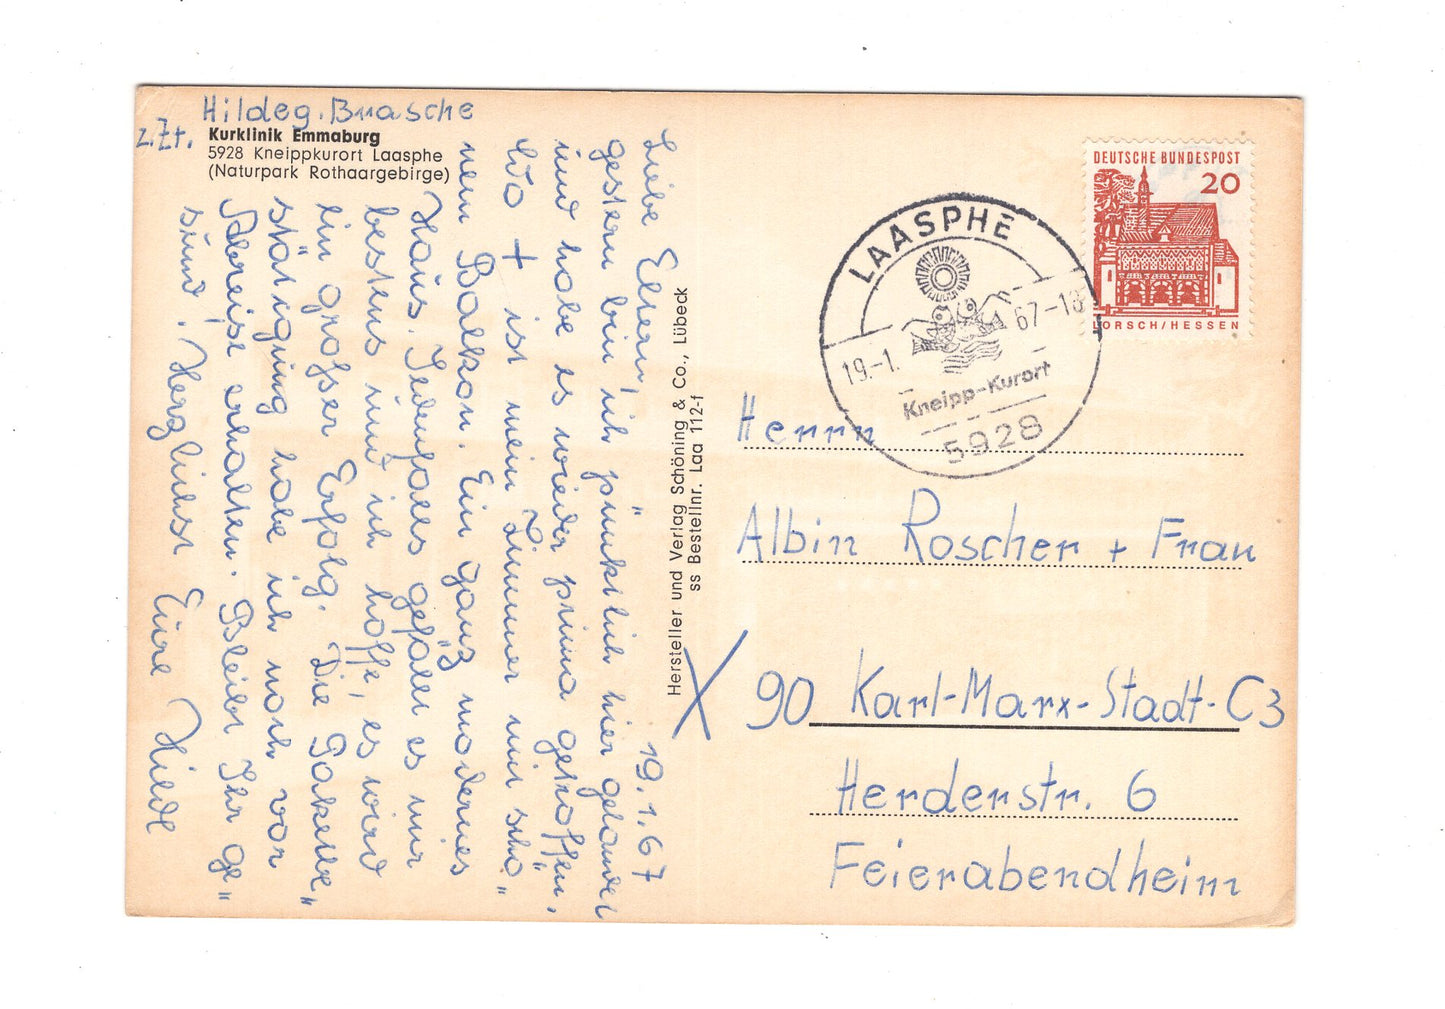 Hildeg. Brasche
z.Zt.
Kurklinik Emmaburg
5928 Kneippkurort Laasphe
(Naturpark Rothaargebirge)
19.1.67
Liebe Eltern, ich
gestern bin ich pünktlich hier gelandet
und habe es wieder prima getroffen,
Wo + ist mein Zimmer mit schö"
nem Balkon. Ein ganz modernes
Haus. Jedenfalls gefällt es mir
bestens und ich hoffe, es wird
ein großer Erfolg. Die Paketbe"
stätigung habe ich noch vor
Abreise erhalten. Bleibt Ihr ge"
sund. Herzlichst Eure Hilde
Hersteller und Verlag Schöning & Co., Lübeck
ss Bestellnr. Laa 112-f
DEUTSCHE BUNDESPOST
20
LORSCH/HESSEN
LAASPHE
19.-1. 67-18
Kneipp-Kurort
5928
Herrn
Albin Roscher + Frau
X 90 Karl-Marx-Stadt-C3
Herderstr. 6
Feierabendheim